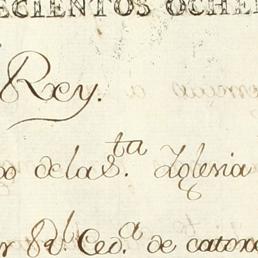 ECIENTOS OCHEN
Rey.
o de la S.ta Iglesia
r Rl. Ced.a de catorce